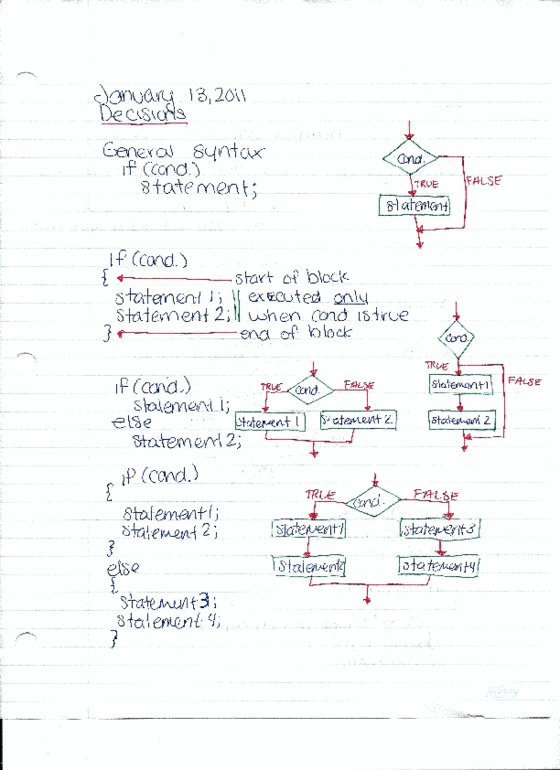 January 13, 2011
Decisions
General Syntax
if (cond.)
statement;
cond.
TRUE
FALSE
statement
if (cond.)
{ start of block
statement 1; || executed only
statement 2; || when cond is true
} end of block
cond.
TRUE
FALSE
statement1
statement 2
if (cond.)
statement 1;
else
statement 2;
TRUE cond. FALSE
statement 1 statement 2
if (cond.)
{
statement1;
statement 2;
}
else
{
statement3;
statement 4;
}
TRUE cond. FALSE
statement1 statement3
statement4